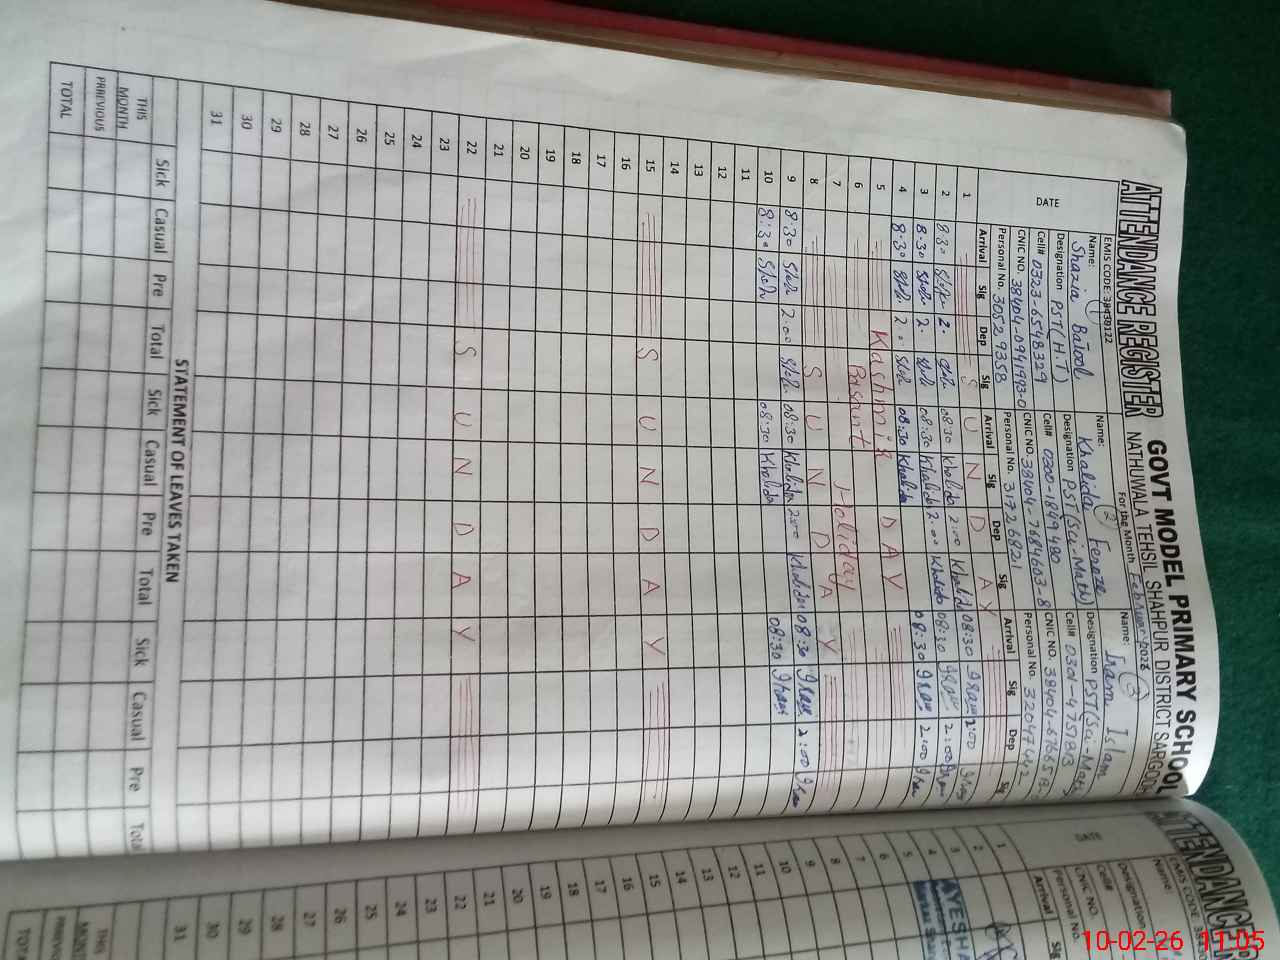 GOVT MODEL PRIMARY SCHOOL
ATTENDANCE REGISTER NATHUWALA TEHSIL SHAHPUR DISTRICT SARGODHA
EMIS CODE: 38430122 For the Month February 2026
DATE
Name: 1 Shazia Batool
Designation PST(H.T)
Cell# 0323-6548329
CNIC NO. 38404-0941993-0
Personal No. 30529358
Name: 2 Khalida Feroze
Designation PST(Sci-Math)
Cell# 0300-1849480
CNIC NO. 38404-7684603-8
Personal No. 31726821
Name: 3 Iram Islam
Designation PST(Sci-Math)
Cell# 0301-4751893
CNIC NO. 38404-
Personal No. 32047442
Arrival Sig Dep Sig Arrival Sig Dep Sig Arrival Sig Dep Sig
1 S U N D A Y
2 8:30 2: 08:30 Khalida 2:00 Khalida 08:30 Iram 2:00 Iram
3 8:30 2: 08:30 Khalida 2:00 Khalida 08:30 Iram 2:00 Iram
4 8:30 2: 08:30 Khalida 2:00 Khalida 08:30 Iram 2:00 Iram
5 Kashmir DAY
6 Basant Holiday
7
8 S U N D A Y
9 8:30 2:00 08:30 Khalida 2:00 Khalida 08:30 Iram 2:00 Iram
10 8:30 08:30 Khalida 08:30 Iram
11
12
13
14
15 S U N D A Y
16
17
18
19
20
21
22 S U N D A Y
23
24
25
26
27
28
29
30
31
STATEMENT OF LEAVES TAKEN
Sick Casual Pre Total Sick Casual Pre Total Sick Casual Pre Total
THIS MONTH
PRREVIOUS
TOTAL
ATTENDANCE RE
EMIS CODE: 38430
Name:
Designation
Cell#
CNIC NO.
Personal No.
DATE
Arrival Sig
1
2
3
4
5
6
7
8
9
10
11
12
13
14
15
16
17
18
19
20
21
22
23
24
25
26
27
28
29
30
31
AYESHA
THIS
MONT
PRREVIOUS
TOTA
10-02-26 11:05